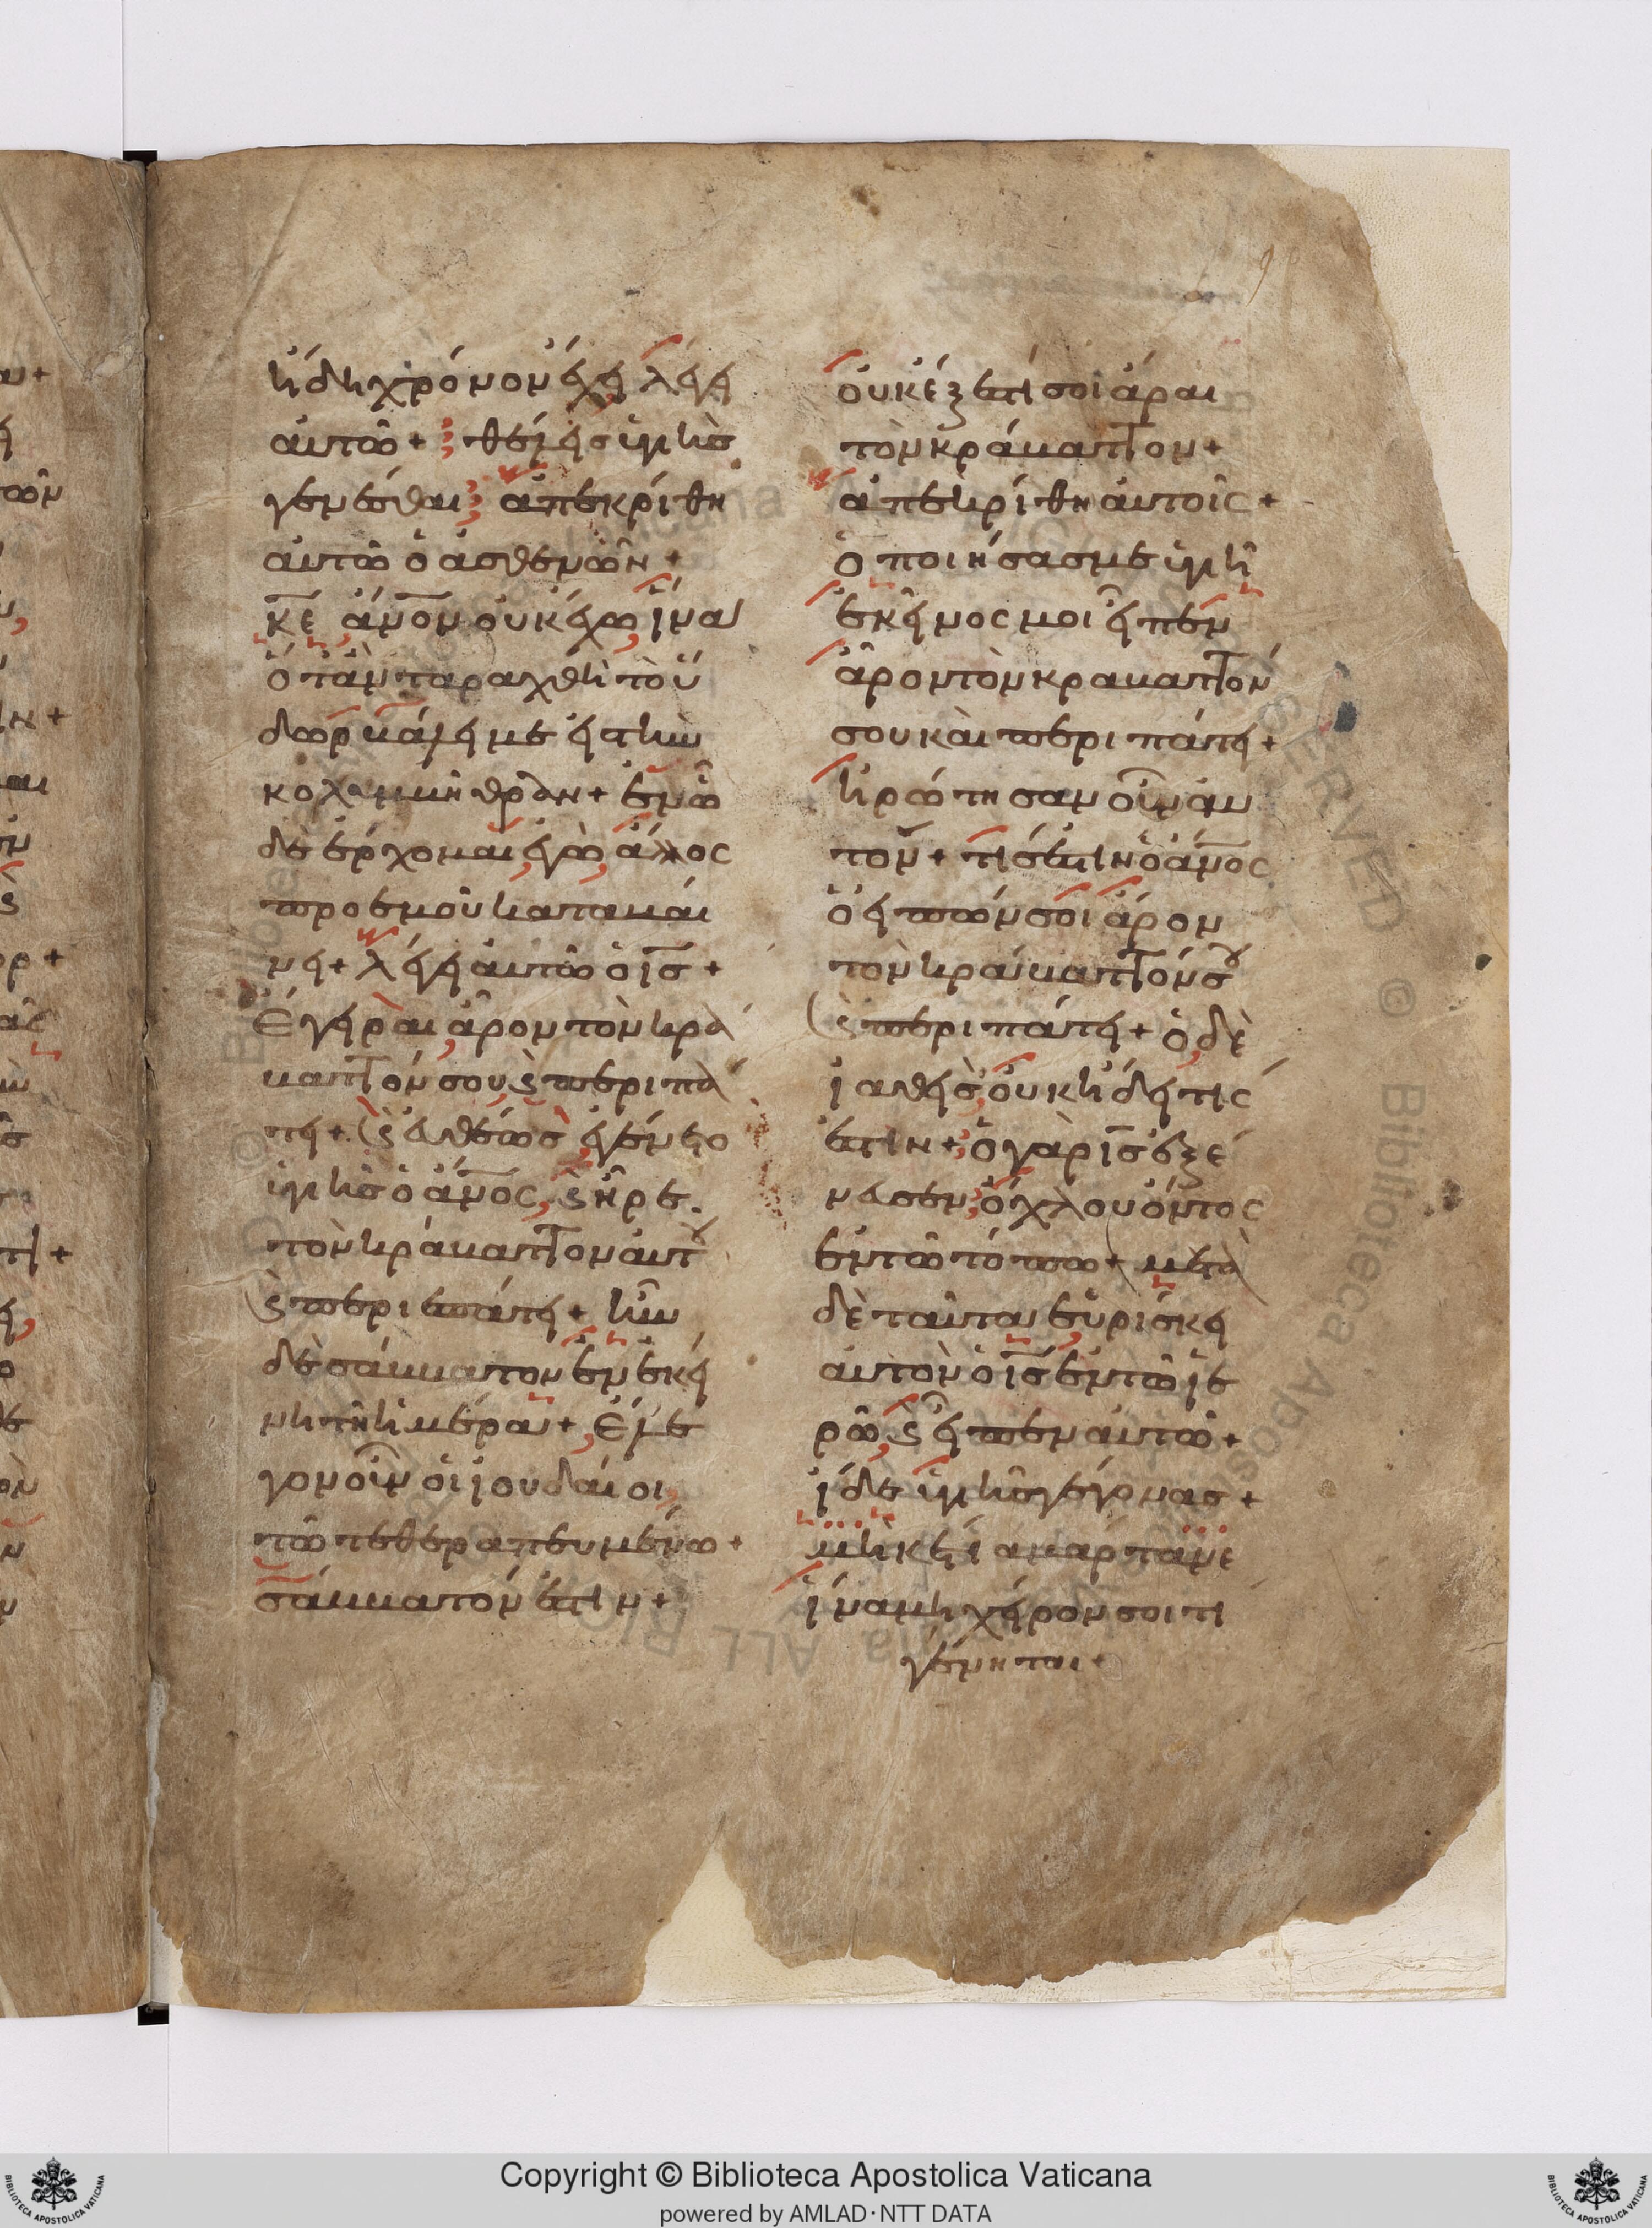 ἤδη χρόνον ἔχει λέγει
αὐτῶ + θέλεις ὑγιὴσ
γενέσθαι; ἀπεκρίθη
αὐτῶ ὁ ἀσθενῶν +
κε ἄνον οὐκ ἔχω ἵνα
ὅταν ταραχθῆ τὸ ὕ
δωρ βάλει με εἰς τὴν
κολυμβήθραν + ἐν ὧ
δὲ ἔρχομαι ἐγὼ ἄλλος
προ ἐμοῦ καταβαί
νει + λέγει αὐτῶ ὁ ισ +
Έγειραι ἆρον τὸν κρά
βαττόν σου, ϗ περιπά
τει + ϗ εὐθέωσ ἐγένετο
ὑγιὴσ ὁ ἄνος, ϗ ἦρε
τὸν κράβαττον αὐτου
ϗ περιεπάτει + ἦν
δὲ σάββατον ἐν ἐκεί
νη τῆ ἡμέρα +, Ἔλε
γον οὖν οἱ ἰουδαίοι
τῶ τεθεραπευμένω +
σάββατόν ἐστιν +
οὐκ έξεστί σοι ἆραι
τὸν κράβαττον +
ἀπεκρίθη αὐτοῖς +
ὁ ποιήσασ με ὑγιῆ
ἐκεῖνος μοι εἶπεν
ἆρον τὸν κραβαττόν
σου καὶ περιπάτει +
ἠρώτησαν οὖν αὐ
τον + τίσ ἐστιν ὁ ἄνος
ὁ εἰπών σοι ἆρον
τὸν κράβαττόν σου
ϗ περιπάτει + ὁ δὲ
ἰαθεὶσ οὐκ ἤδει τις
ἐστιν + ὁ γὰρ ισ ἐξέ
νευσεν, ὄχλου ὄντος
ἐν τῶ τόπω + μετὰ
δὲ ταῦτα εὑρίσκει
αὐτὸν ὁ ισ ἐν τῶ ἱε
ρῶ, ϗ εἶπεν αὐτῶ +
ἴδε ὑγιὴσ γέγονασ +
μηκέτι αμαρτανε
ἵνα μὴ χεῖρον σοι τι
γένηται +
Copyright © Biblioteca Apostolica Vaticana
powered by AMLAD·NTT DATA